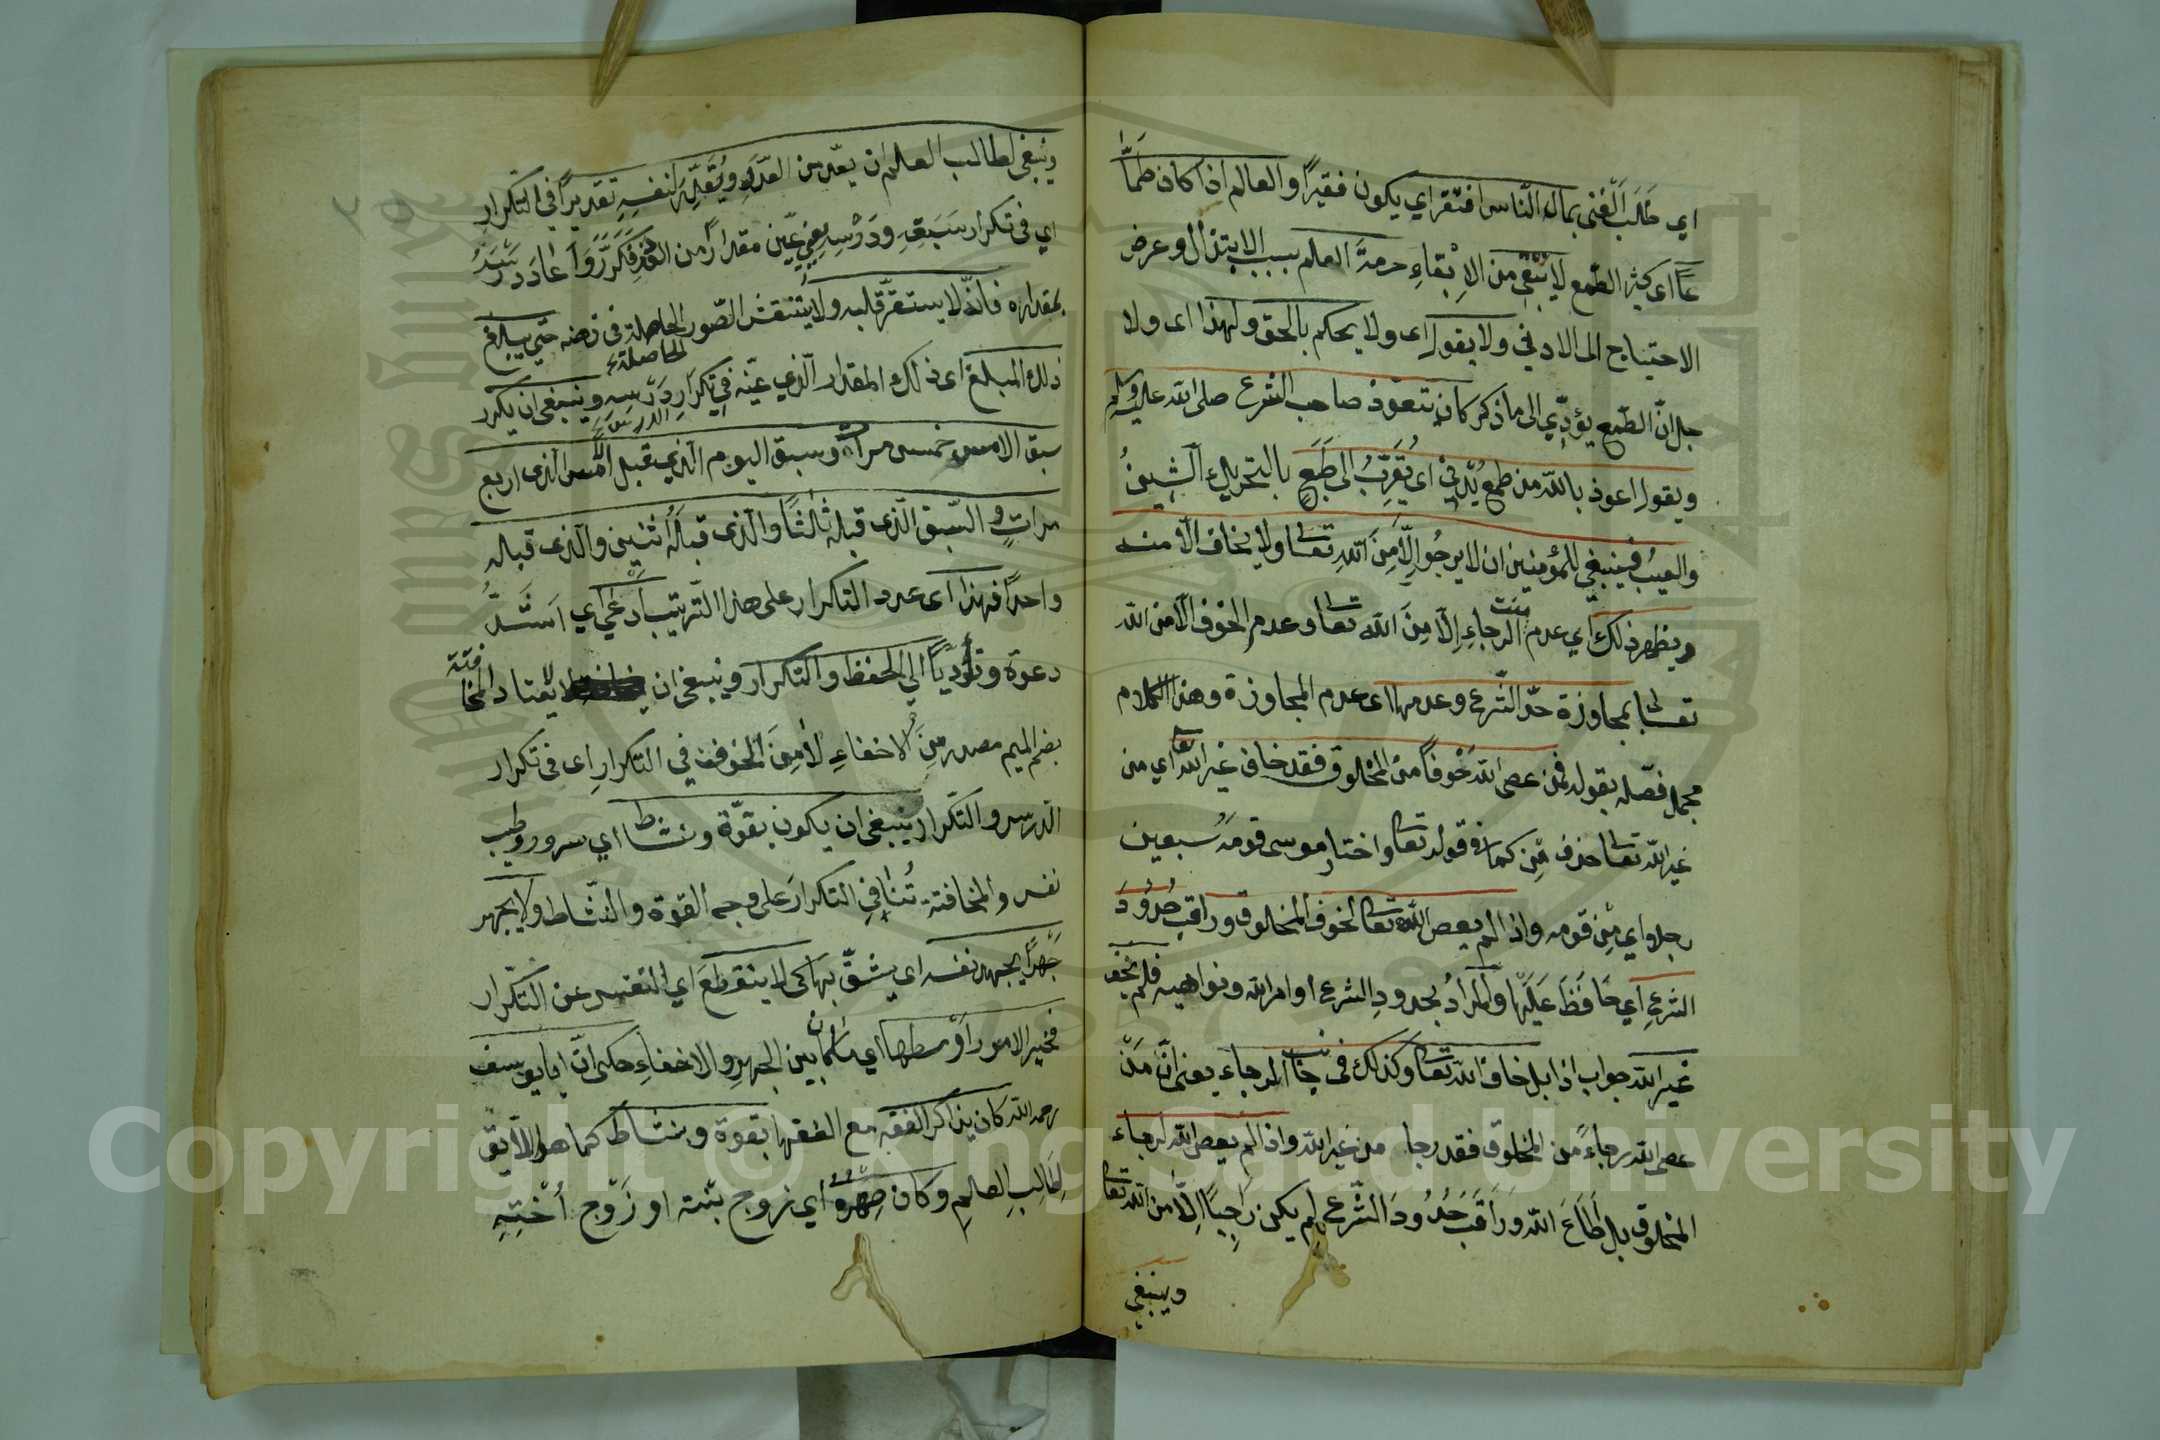 اي طَلَبَ الْغِنى بمال النّاس افتقر اي يكون فقيرًا والعالم اذا كان طَمَّا
عًا اى كثير الطّمع لا يُبْقى من الاِبْقاءِ حرمةَ العلم بسبب الابتذال وعرض
الاحتياج الى الادنى ولا يقول اى ولا يحكم بالحق ولهذا اى ولا
جل انّ الطّمع يؤدّي الى ما ذكر كان يتعوّذ صاحب الشرع صلى الله عليه وسلم
ويقول اعوذ بالله من طمع يُدْنِي اى يُقَرِّبُ الى طَبَعٍ بالتحريك الشينُ
والعيبُ فينبغي للمؤمنين ان لا يرجُوا إلّا مِنَ اللهِ تعالى ولا يخاف الّا منه
ويظهر ذلك اي عدم الرجاءِ إلّا مِنَ الله تعالى وعدم الخوف الّا من الله
تعالى بمجاوزة حدّ الشّرع وعدمها اى عدم المجاوزة وهذا الكلام
مجمل فصّله بقوله فمن عصى الله خَوفاً من المخلوق فقد خاف غير الله تعالى اي من
غير الله تعالى حذف مِن كما في قوله تعالى واختار موسى قومه سبعين
رجلا اي مِن قومه واذا لم يعص الله تعالى لخوف المخلوق وراقب حُدُودَ
الشرعِ اي حَافَظَ عَلَيْها والمرادُ بحدودِ الشرع اوامر الله ونواهيه فلم يخف
غير الله جواب اذا بل خاف الله تعالى وكذلك في جانب الرجاء يعنى انّ مَنْ
عصى الله رجاءً من المخلوق فقد رجا من غير الله واذا لم يعص الله لرجاء
المخلوق بل اَطَاعَ الله وَرَاقَبَ حُدُودَ الشّرع لم يكن رَاجِيًا اِلّا من الله تعالى
وينبغي
وينبغى لطالب العلم ان يعدّ من العَدَدِ ويُقَدِّرَ لنفسِهِ تقديرًا في التكرار
اي في تكرار سَبَقِهِ ودَرْسِهِ يعني عيّن مقدارًا من القدر فَكَرَّرَ وَاَعَادَ دَرْسَهُ
بمقداره فانّه لا يستقرّ قلبه ولا يَنتقش الصّور الحاصلة في ذهنه حتى يبلغ
الحاصلة
ذلك المبلغ اى ذلك المقدار الّذي عيّنه في تكرارِ دَرْسِهِ وينبغى ان يكرّر
سبق الامس خمس مرات وسبق اليوم الّذي قبل الامس الّذى اربع
مراتٍ و السّبق الّذى قبله ثالثًا والّذى قبلَهُ اثنين والّذى قبله
واحدًا فهذا اى عدد التكرار على هذا التّرتيب اَدْعٰى اي اَشَدُّ
دعوة وتأوديًا الى الحفظ والتكرار وينبغى ان لا يعتاد المخافتة
بضم الميم مصدر مِنَ الاخفاءِ لا مِنَ الخوف في التكرارِ اى في تكرار
الدّرس والتكرار ينبغى ان يكون بقوّة ونشاط اي سرور وطيب
نفس والمخافتة تُنافي التكرارَ على وجه القوّة والنّشاط ولا يجهر
جَهْرًا يجهد نفسه اى يشقّ بها كى لا ينقطعَ اي النفس عن التكرار
فخير الامور اَوْسطها اي ما كان بين الجهرِ والاخفاءِ حكى انّ ابا يوسف
رحمه الله كان يذاكر الفقه مع الفقهاء بقوة ونشاط كما هو اللّايق
لِطَالِبِ العلمِ وكان صِهْرُهُ اي زوج بنته او زَوْج اُخْتِهِ
Copyright © King Saud University
King Saud University
1957